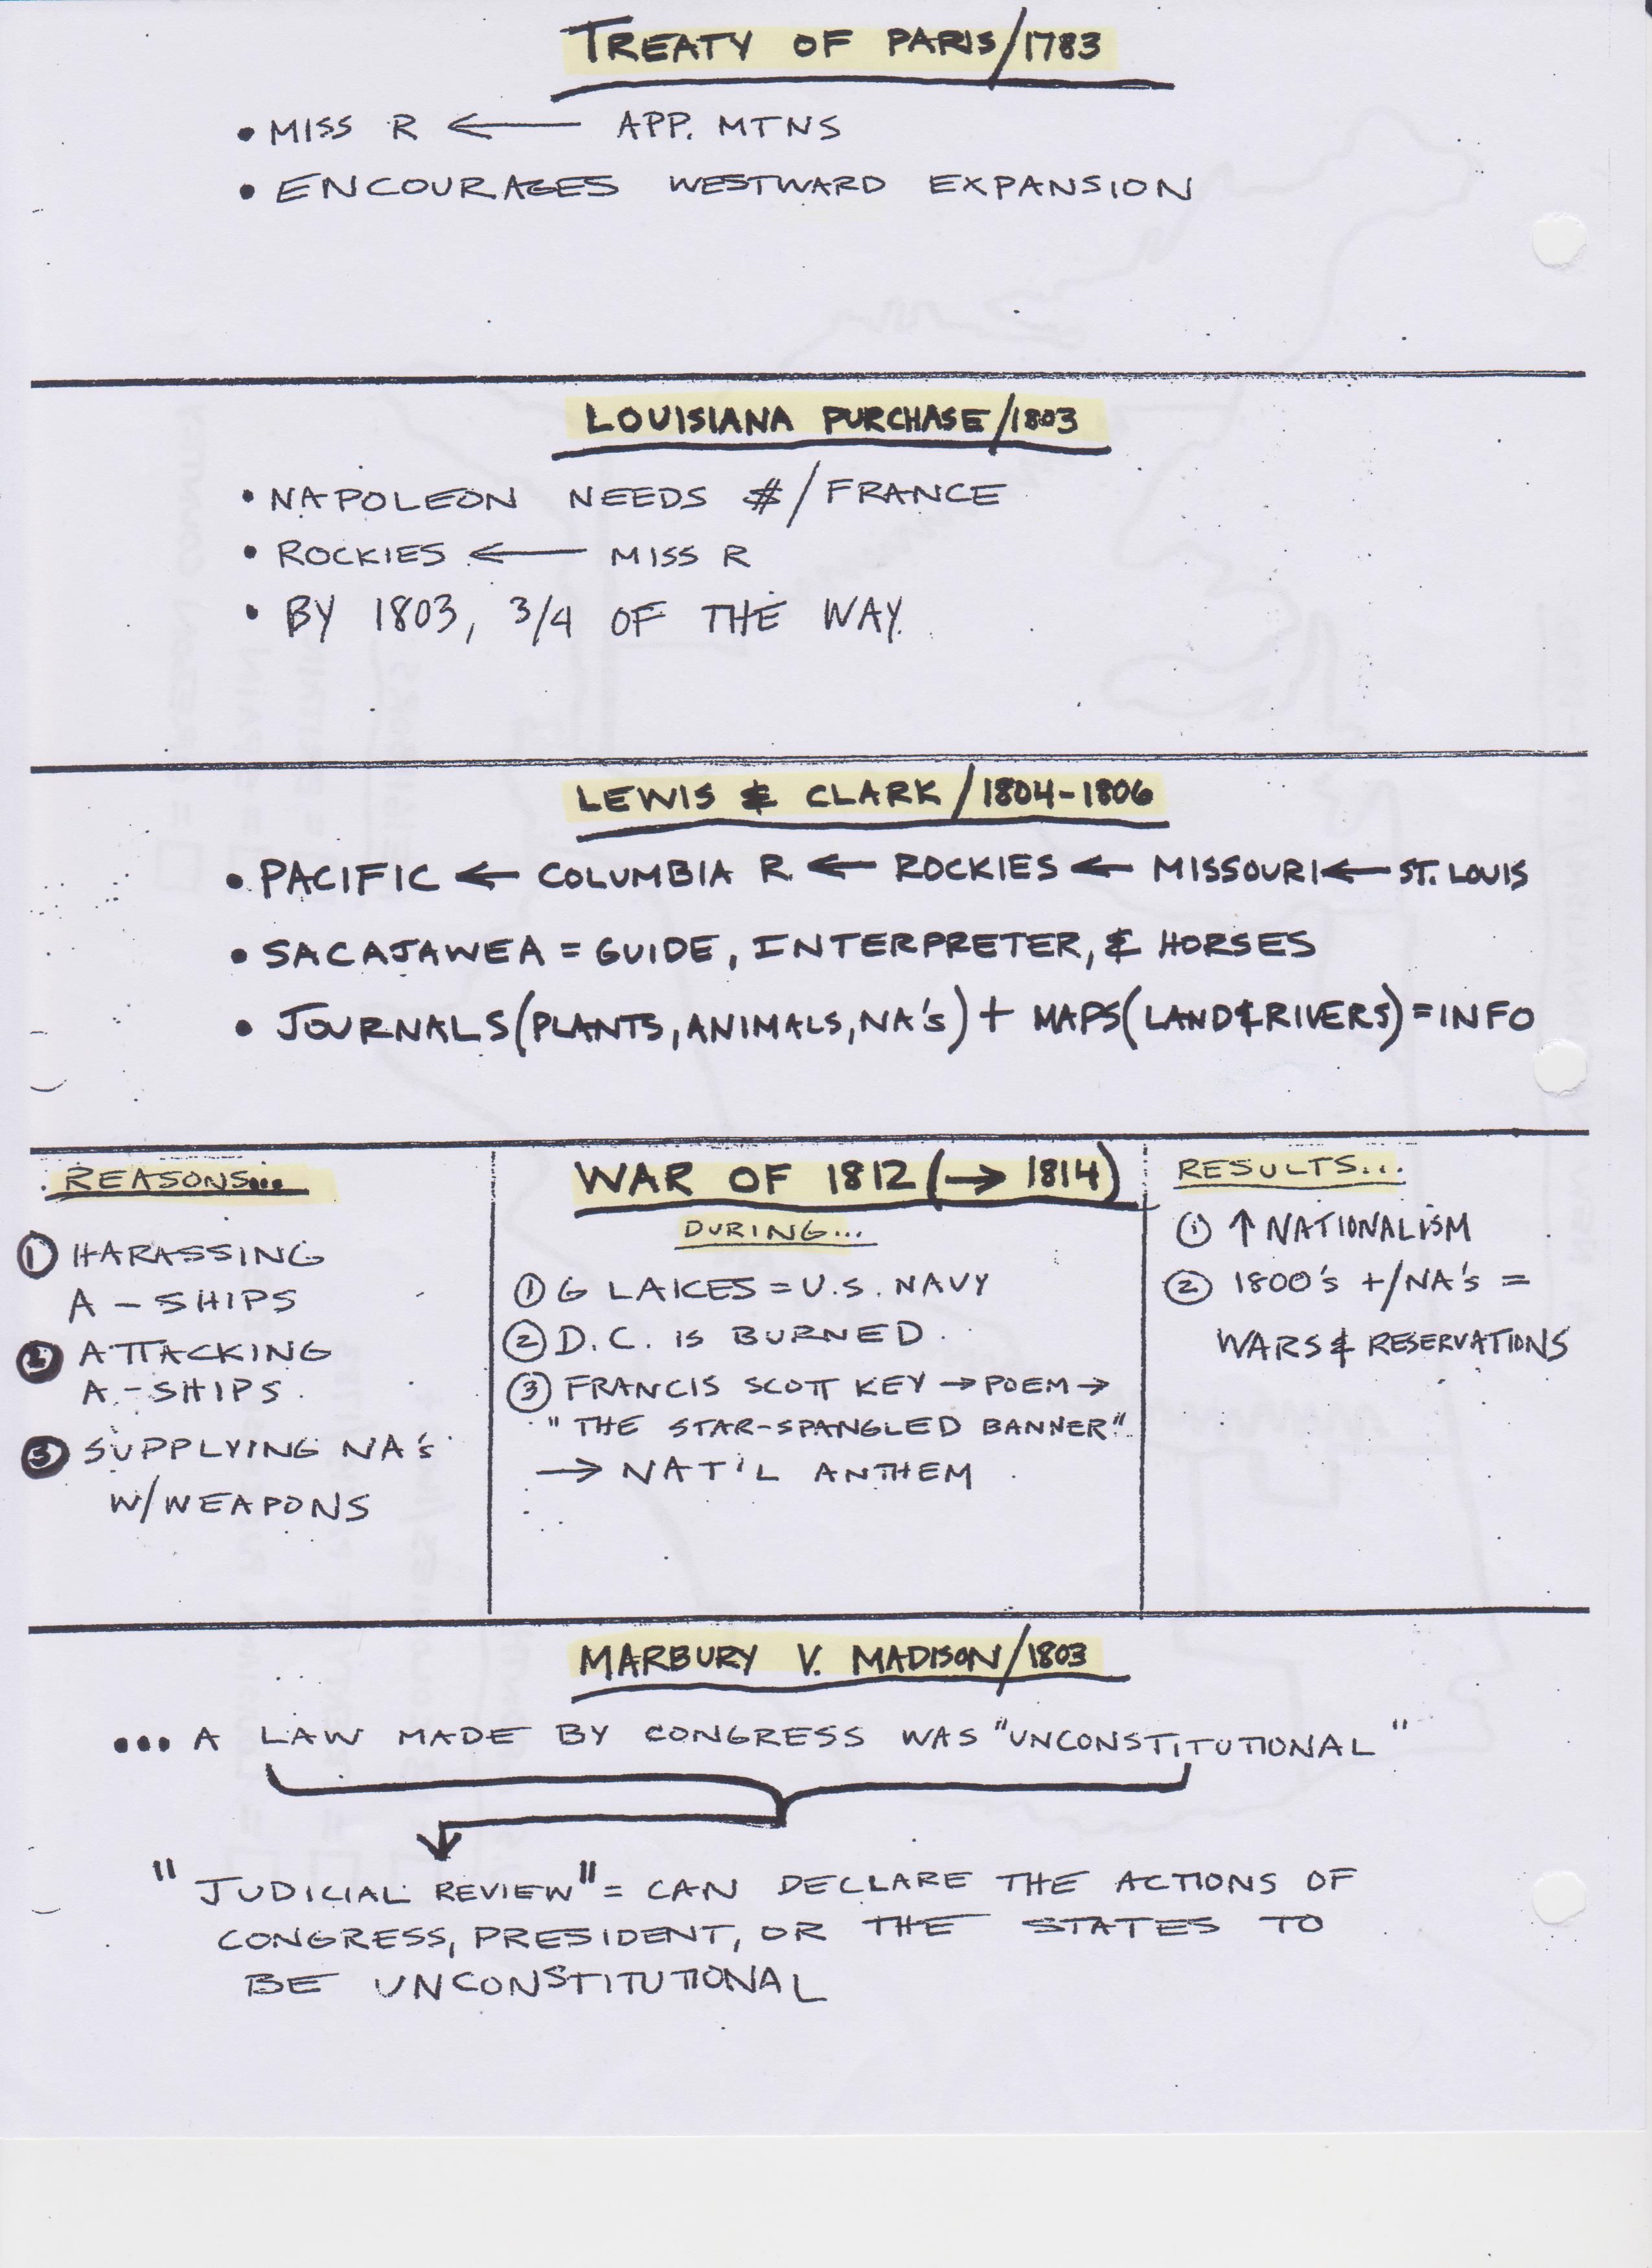 TREATY OF PARIS/1783
• MISS R ← APP. MTNS
• ENCOURAGES WESTWARD EXPANSION
LOUISIANA PURCHASE/1803
• NAPOLEON NEEDS $/FRANCE
• ROCKIES ← MISS R
• BY 1803, 3/4 OF THE WAY.
LEWIS & CLARK/1804-1806
• PACIFIC ← COLUMBIA R. ← ROCKIES ← MISSOURI ← ST. LOUIS
• SACAJAWEA = GUIDE, INTERPRETER, & HORSES
• JOURNALS (PLANTS, ANIMALS, NA's) + MAPS (LAND & RIVERS) = INFO
REASONS...
① HARASSING
A-SHIPS
② ATTACKING
A-SHIPS
③ SUPPLYING NA's
W/WEAPONS
WAR OF 1812 (→ 1814)
DURING...
① G LAKES = U.S. NAVY
② D.C. IS BURNED
③ FRANCIS SCOTT KEY → POEM →
"THE STAR-SPANGLED BANNER"
→ NAT'L ANTHEM
RESULTS...
① ↑ NATIONALISM
② 1800's +/NA's =
WARS & RESERVATIONS
MARBURY V. MADISON/1803
... A LAW MADE BY CONGRESS WAS "UNCONSTITUTIONAL"
"JUDICIAL REVIEW" = CAN DECLARE THE ACTIONS OF
CONGRESS, PRESIDENT, OR THE STATES TO
BE UNCONSTITUTIONAL